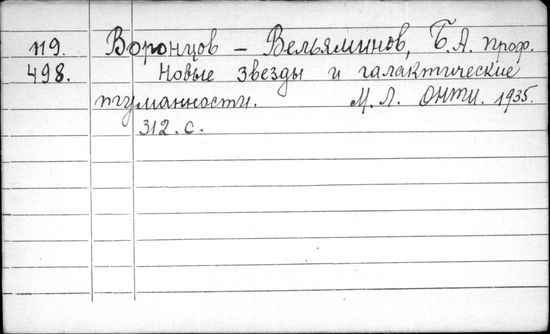 119. Воронцов – Вельяминов, Б.А. проф.
498. Новые звезды и галактические
туманности. М.Л. ОНТИ. 1935.
312. с.